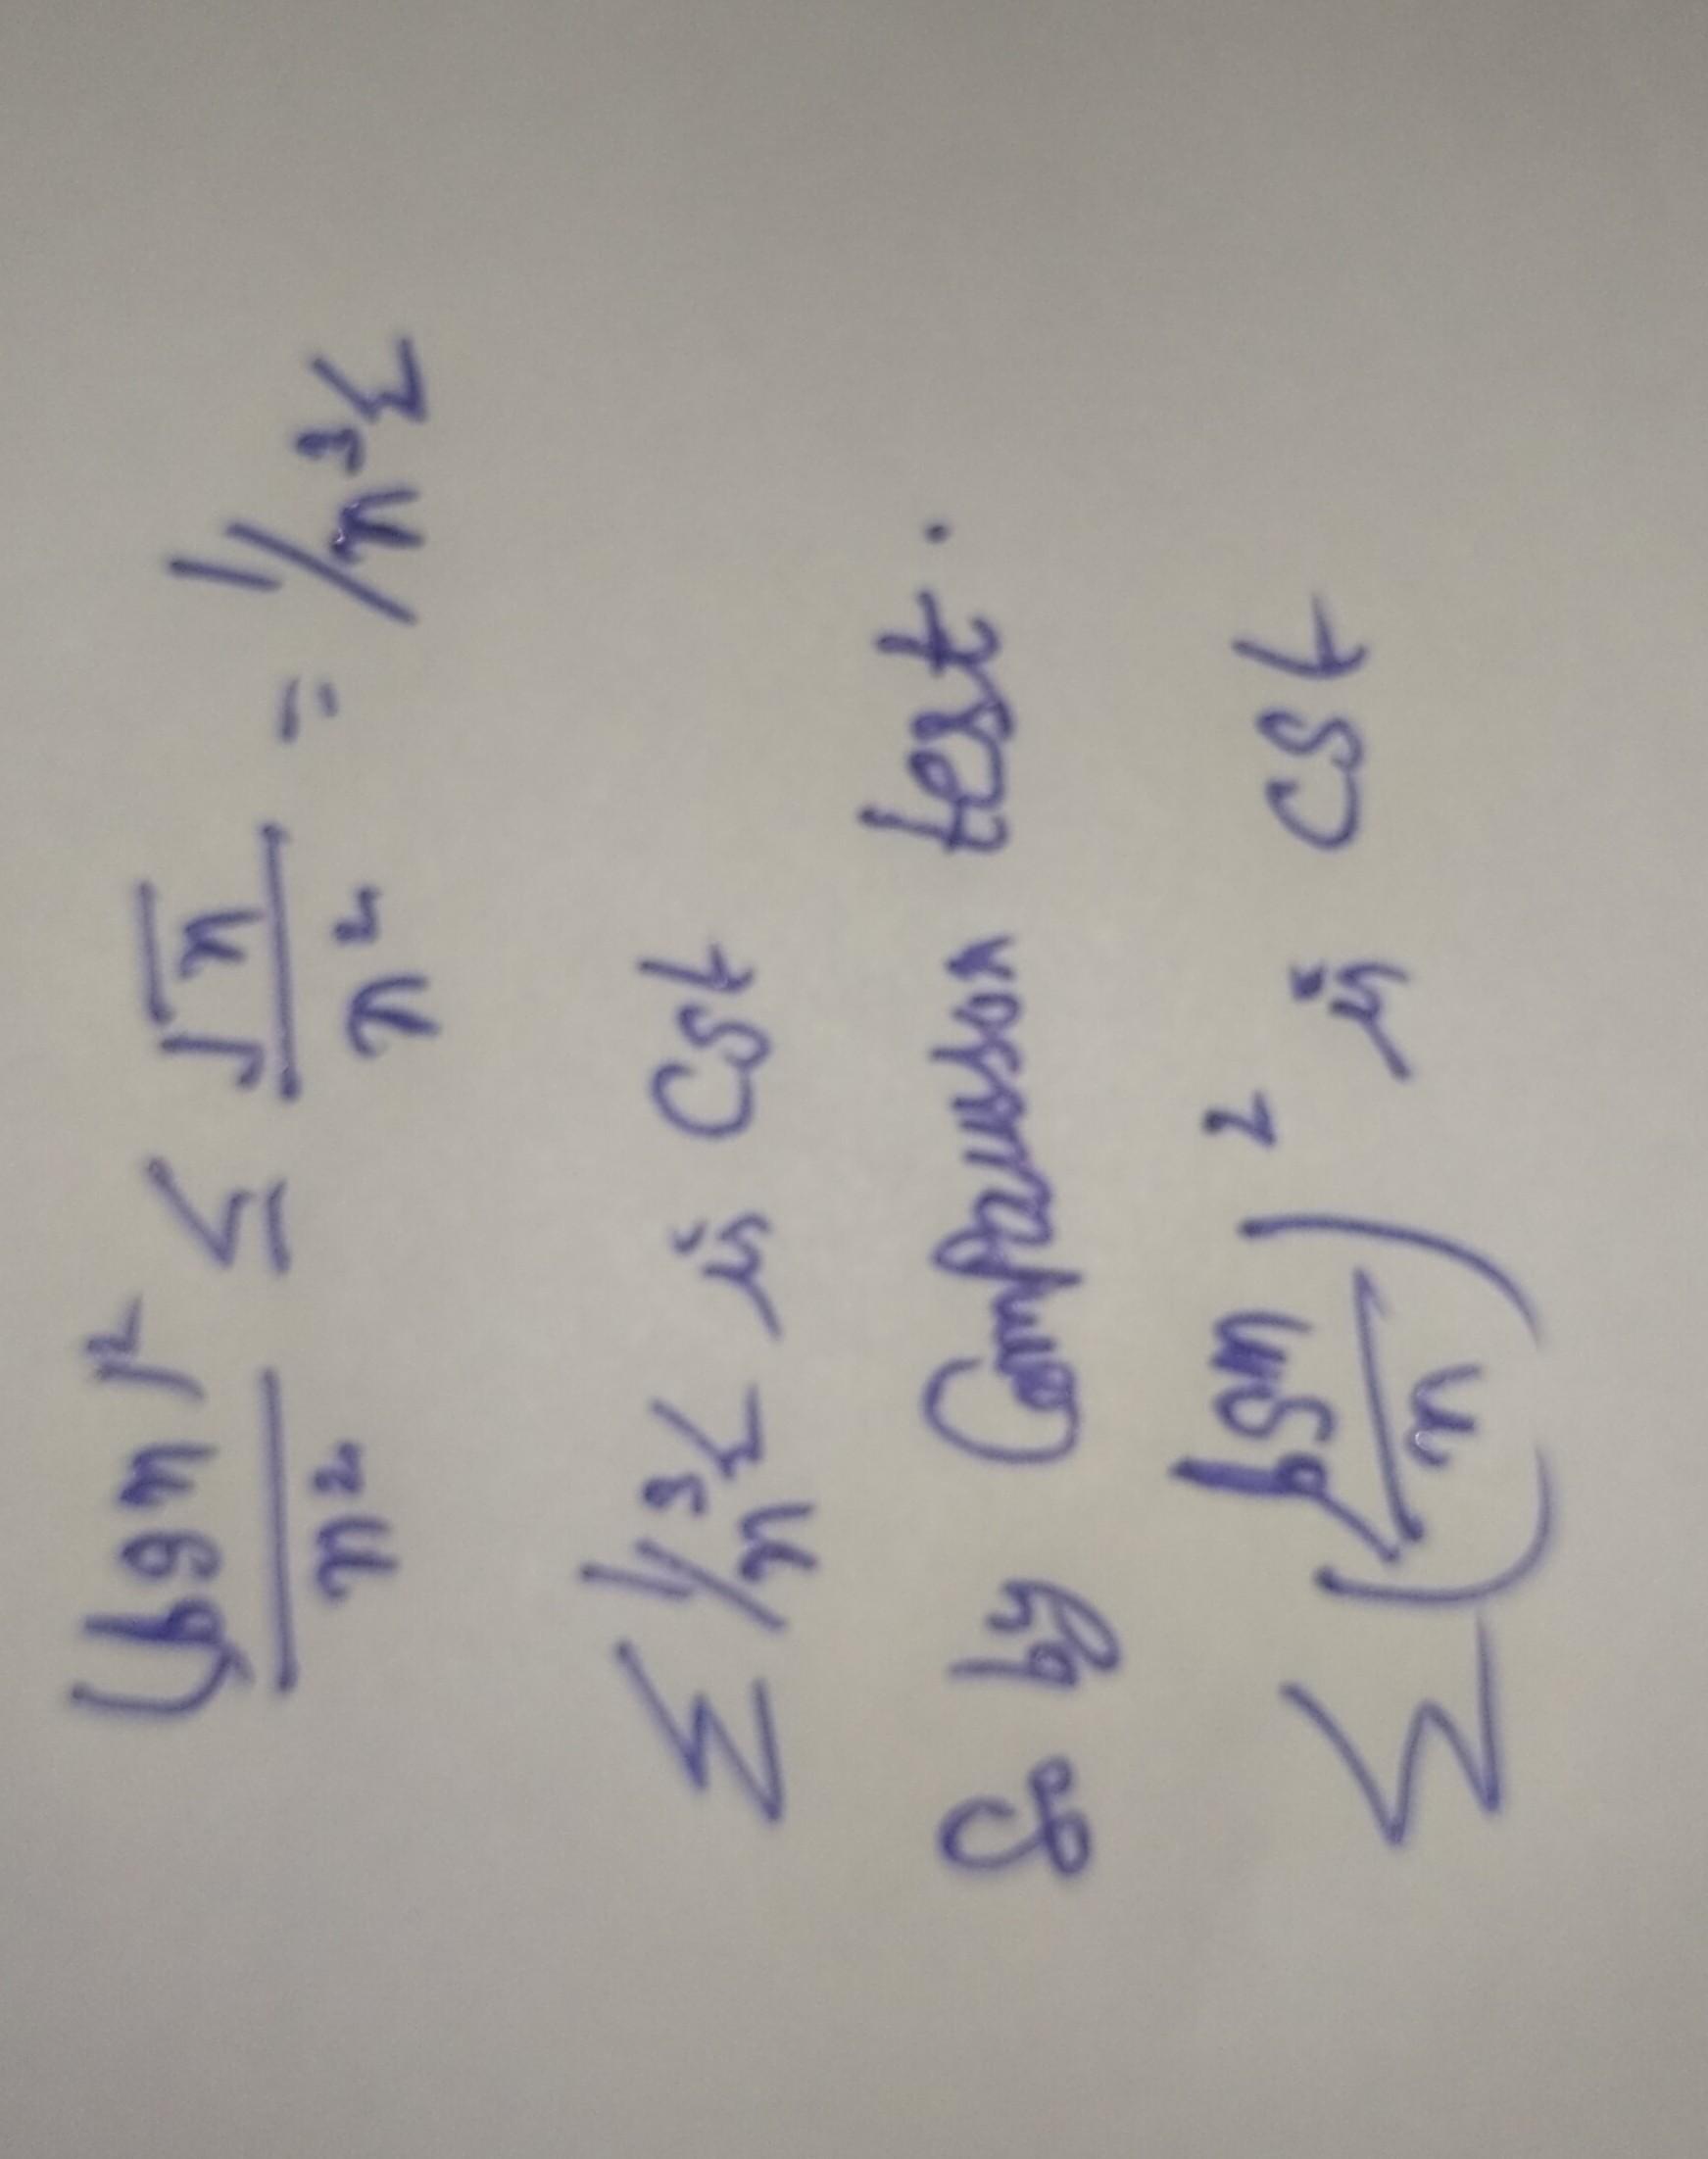 (log n)² / n² ≤ √n / n² = 1/n^3/2
Σ 1/n^3/2 is cgt
So by Comparison test.
Σ (log n / n)² is cgt